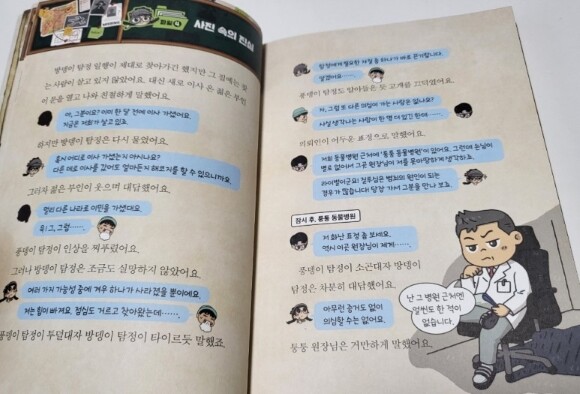 사진 속의 진실
방댕이 탐정 일행이 제대로 찾아가긴 했지만 그 집에는 찾
는 사람이 살고 있지 않았어요. 대신 새로 이사 온 젊은 부인
이 문을 열고 나와 친절하게 말했어요.
아, 그분이요? 이미 한 달 전에 이사 가셨어요.
지금은 저희가 살고 있죠.
하지만 방댕이 탐정은 다시 물었어요.
혹시 어디로 이사 가셨는지 아시나요?
다른 데로 이사를 갔어도 얼마든지 해코지를 할 수 있으니까요.
그러자 젊은 부인이 웃으며 대답했어요.
멀리 다른 나라로 이민을 가셨대요.
윽! 그, 그럼…….
풍뎅이 탐정이 인상을 찌푸렸어요.
그러나 방댕이 탐정은 조금도 실망하지 않았어요.
여러 가지 가능성 중에 겨우 하나가 사라졌을 뿐이에요.
저는 힘이 빠져요. 점심도 거르고 찾아왔는데…….
풍뎅이 탐정이 투덜대자 방댕이 탐정이 타이르듯 말했죠.
탐정에게 필요한 자질 중 하나가 바로 끈기랍니다.
알겠어요…….
풍뎅이 탐정도 알아들은 듯 고개를 끄덕였어요.
자, 그럼 또 다른 의심이 가는 사람은 없나요?
사실 생각나는 사람이 한 명 더 있긴 한데…….
의뢰인이 어두운 표정으로 말했어요.
저희 동물병원 근처에 '퉁퉁 동물병원'이 있어요. 그런데 손님이
별로 없어서 그곳 원장님이 저를 못마땅하게 생각하죠.
라이벌이군요! 질투심은 범죄의 원인이 되는
경우가 많습니다! 당장 가서 그분을 만나 보죠.
잠시 후, 퉁퉁 동물병원
저 화난 표정 좀 보세요.
역시 이곳 원장님이 제게…….
풍뎅이 탐정이 소곤대자 방댕이
탐정은 차분히 대답했어요.
아무런 증거도 없이
의심할 수는 없어요.
퉁퉁 원장님은 거만하게 말했어요.
난 그 병원 근처엔
얼씬도 한 적이
없습니다.